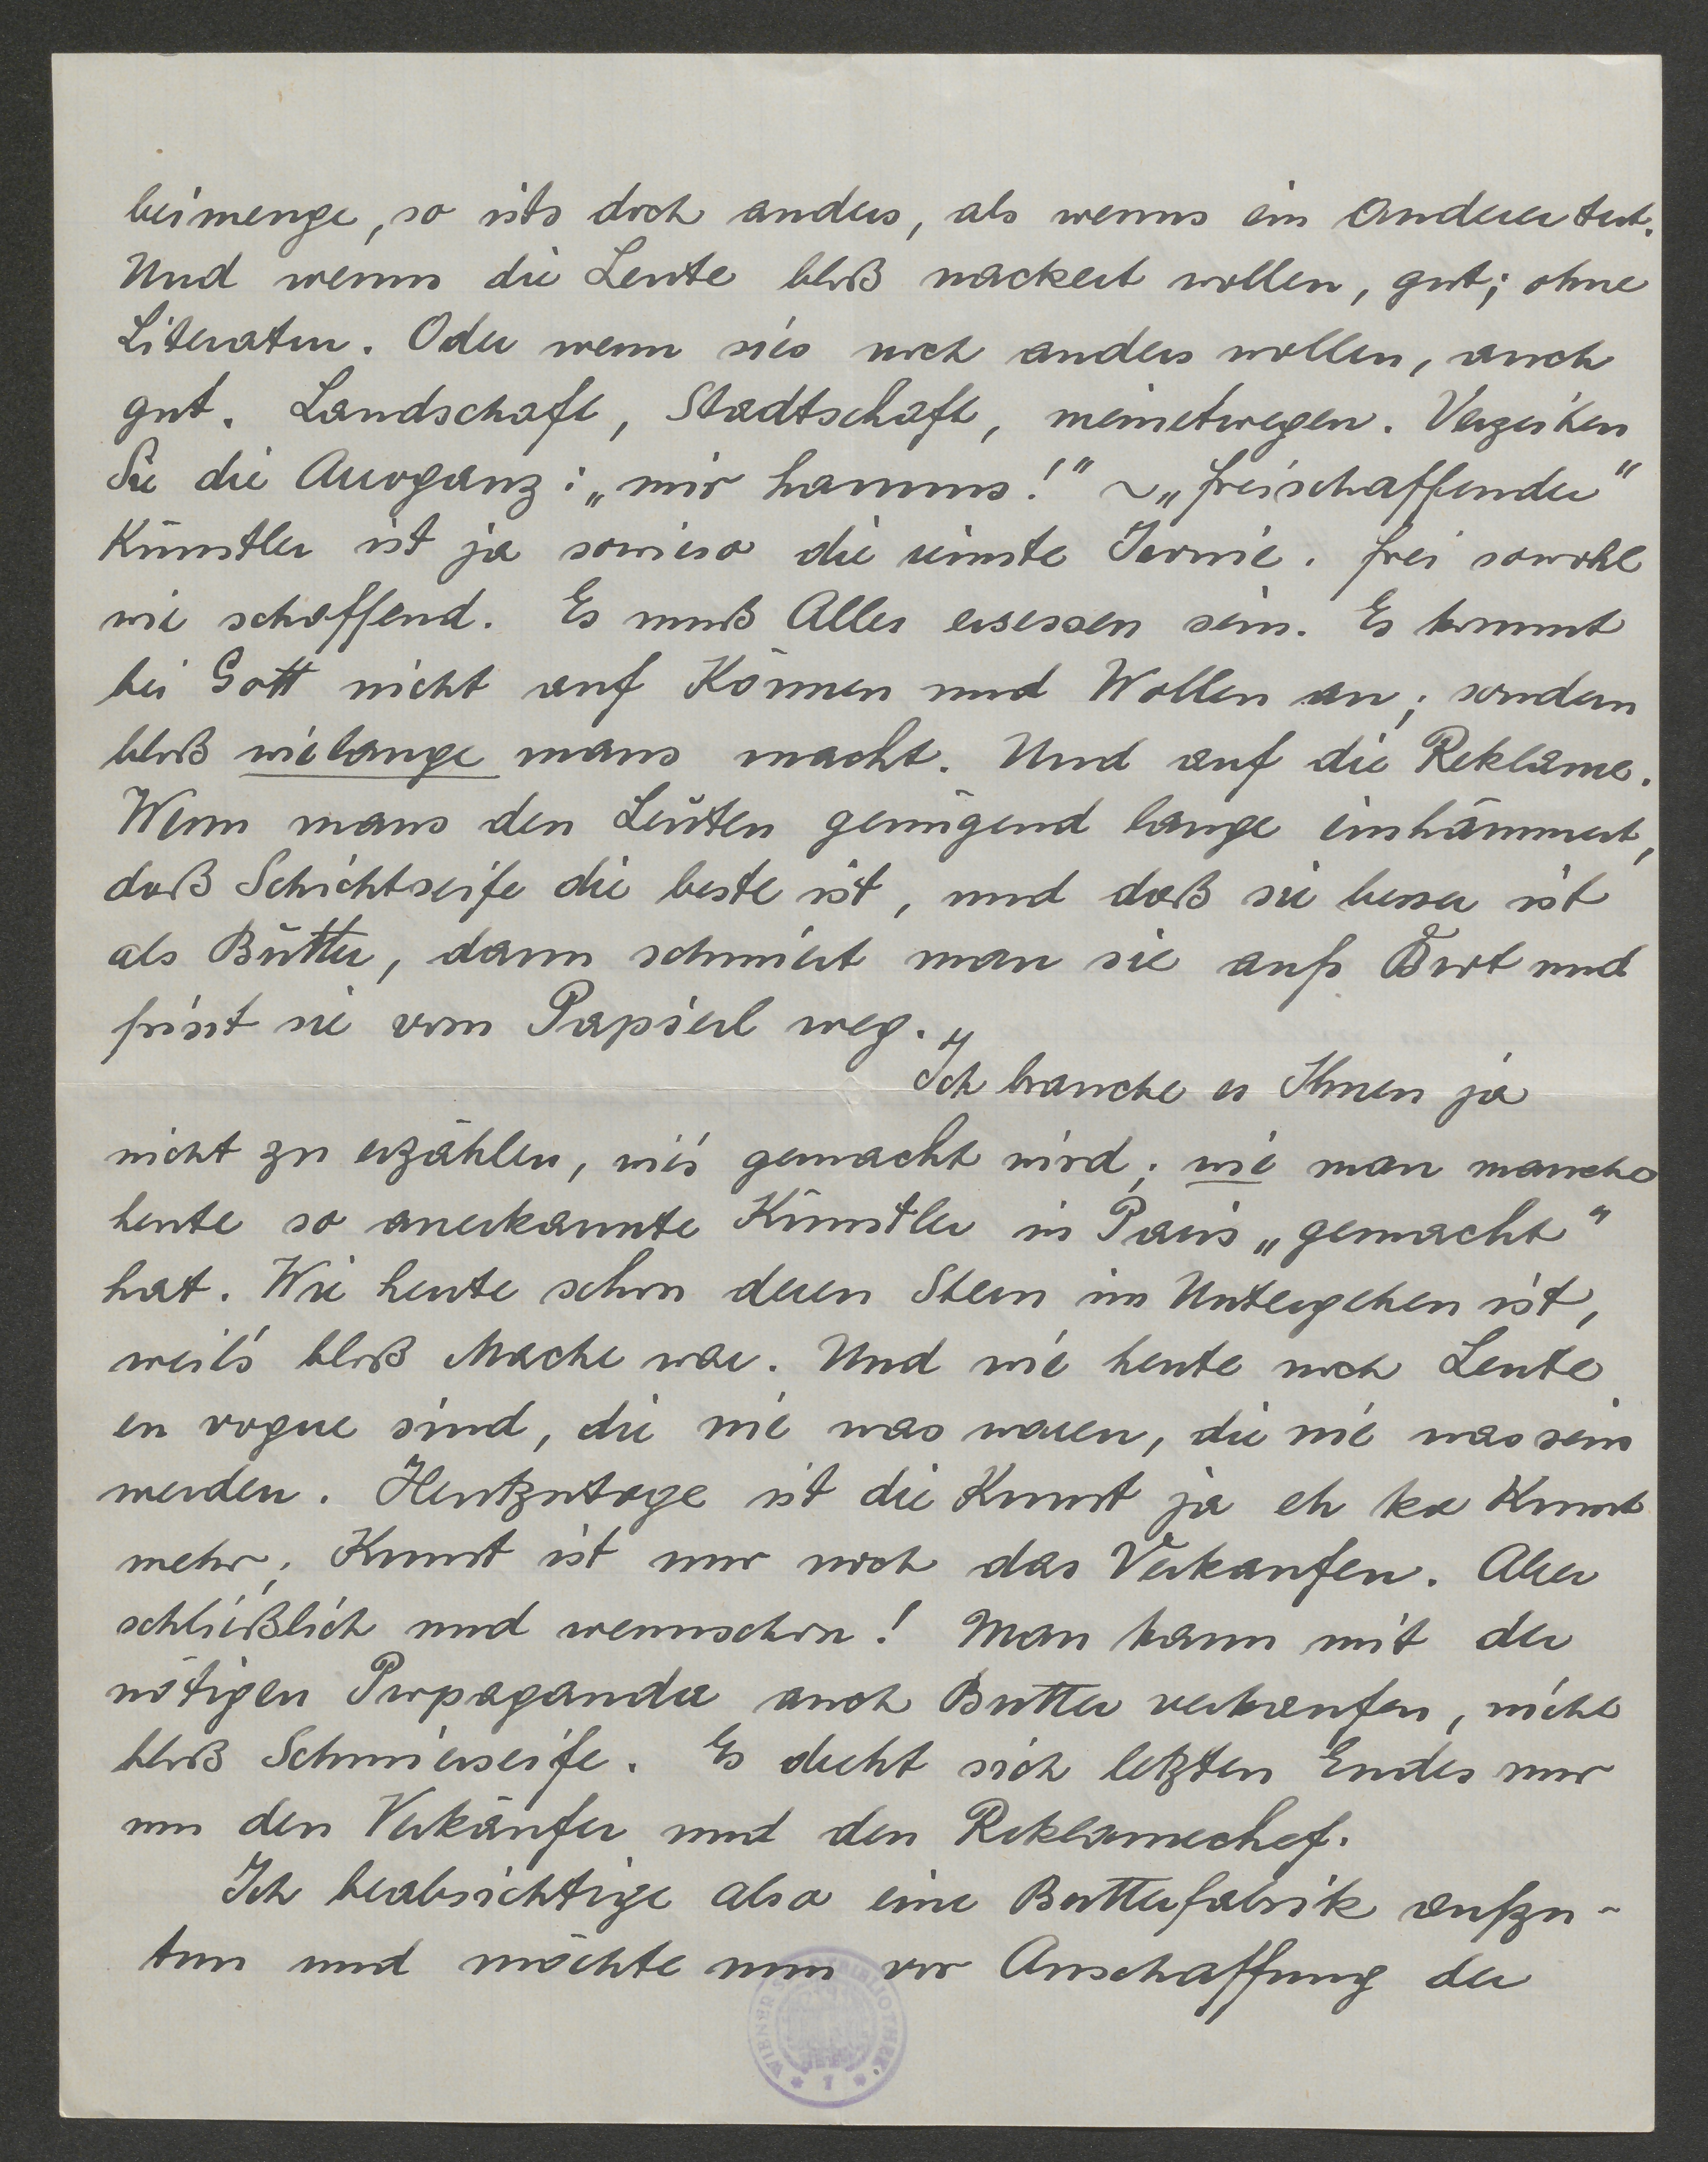 beimenge, so ists doch anders, als wenns ein Anderer tut.
Und wenns die Leute bloß nackert wollen, gut; ohne
Literatur. Oder wenn sies noch anders wollen, auch
gut. Landschaft, Stadtschaft, meinetwegen. Verzeihen
Sie die Arroganz: „mir hamms!" ~ „freischaffender"
Künstler ist ja sowieso die reinste Ironie. frei sowohl
wie schaffend. Es muß Alles ersessen sein. Es kommt
bei Gott nicht auf Können und Wollen an; sondern
bloß wielange mans macht. Und auf die Reklame.
Wenn mans den Leuten genügend lange einhämmert,
daß Schichtseife die beste ist, und daß sie besser ist
als Butter, dann schmiert man sie aufs Brot und
frisst sie vom Papierl weg.
Ich brauche es Ihnen ja
nicht zu erzählen, wie's gemacht wird; wie man manche
heute so anerkannte Künstler in Paris „gemacht"
hat. Wie heute schon deren Stern im Untergehen ist,
weil's bloß Mache war. Und wie heute noch Leute
en vogue sind, die nie was waren, die nie was sein
werden. Heutzutage ist die Kunst ja eh ka Kunst
mehr; Kunst ist nur noch das Verkaufen. Aber
schließlich und wennschon! Man kann mit der
nötigen Propaganda auch Butter verkaufen, nicht
bloß Schmierseife. Es dreht sich letzten Endes nur
um den Verkäufer und den Reklamechef.
Ich beabsichtige also eine Butterfabrik aufzu-
tun und möchte nun vor Anschaffung der
WIENER STADTBIBLIOTHEK